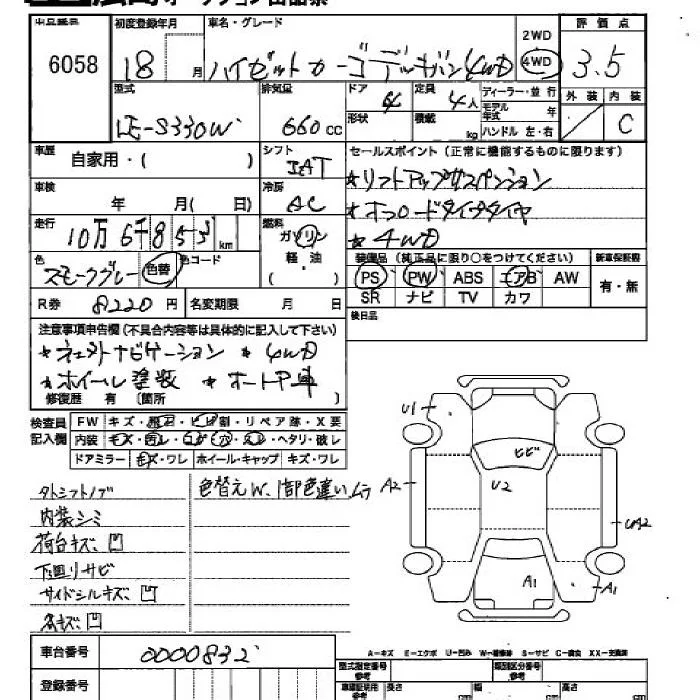 オークション出品票
出品番号 初度登録年月 車名・グレード 2WD 評価点
6058 18 月 ハイゼットカーゴデッキバン4WD 4WD 3.5
型式 排気量 ドア 定員 ディーラー・並行 外装 内装
660 cc 4 4人 モデル年式 年 C
形状 積載 kg ハンドル 左・右
車歴 シフト セールスポイント(正常に機能するものに限ります)
自家用・( ) IAT ★リフトアップサスペンション
車検 冷房
年 月( 日) AC
走行 10万6千853 km 燃料 ガソリン ★4WD
色 スモークグレー 色替 色コード 軽・油 ( )
装備品(純正品に限り○をつけてください) 新車保証書
PS PW ABS エアB AW 有・無
SR ナビ TV カワ
R券 8220 円 名変期限 月 日 後日品
注意事項申告欄(不具合内容等は具体的に記入して下さい)
ナビゲーション ★4WD
★ホイール塗装
修復歴 有 〔箇所 〕
検査員記入欄 FW キズ・飛石・ヒビ割・リペア跡・X要
内装 キズ・色レ・コゲ・穴・スレ・ヘタリ・破レ
ドアミラー キズ・ワレ ホイール・キャップ キズ・ワレ
色替えW、1部色違いムラ
内装シミ
荷台キズ、凹
下回りサビ
サイドシルキズ、凹
各キズ、凹
U1 ヒビ
A2 U2 UA2
A1 A1
A-キズ E-エクボ U-凹み W-補修跡 S-サビ C-腐食 XX-交換済
車台番号 0000832
型式指定番号 参考 類別区分番号 参考
登録番号 車庫証明用 参考 長さ cm 幅 cm 高さ cm